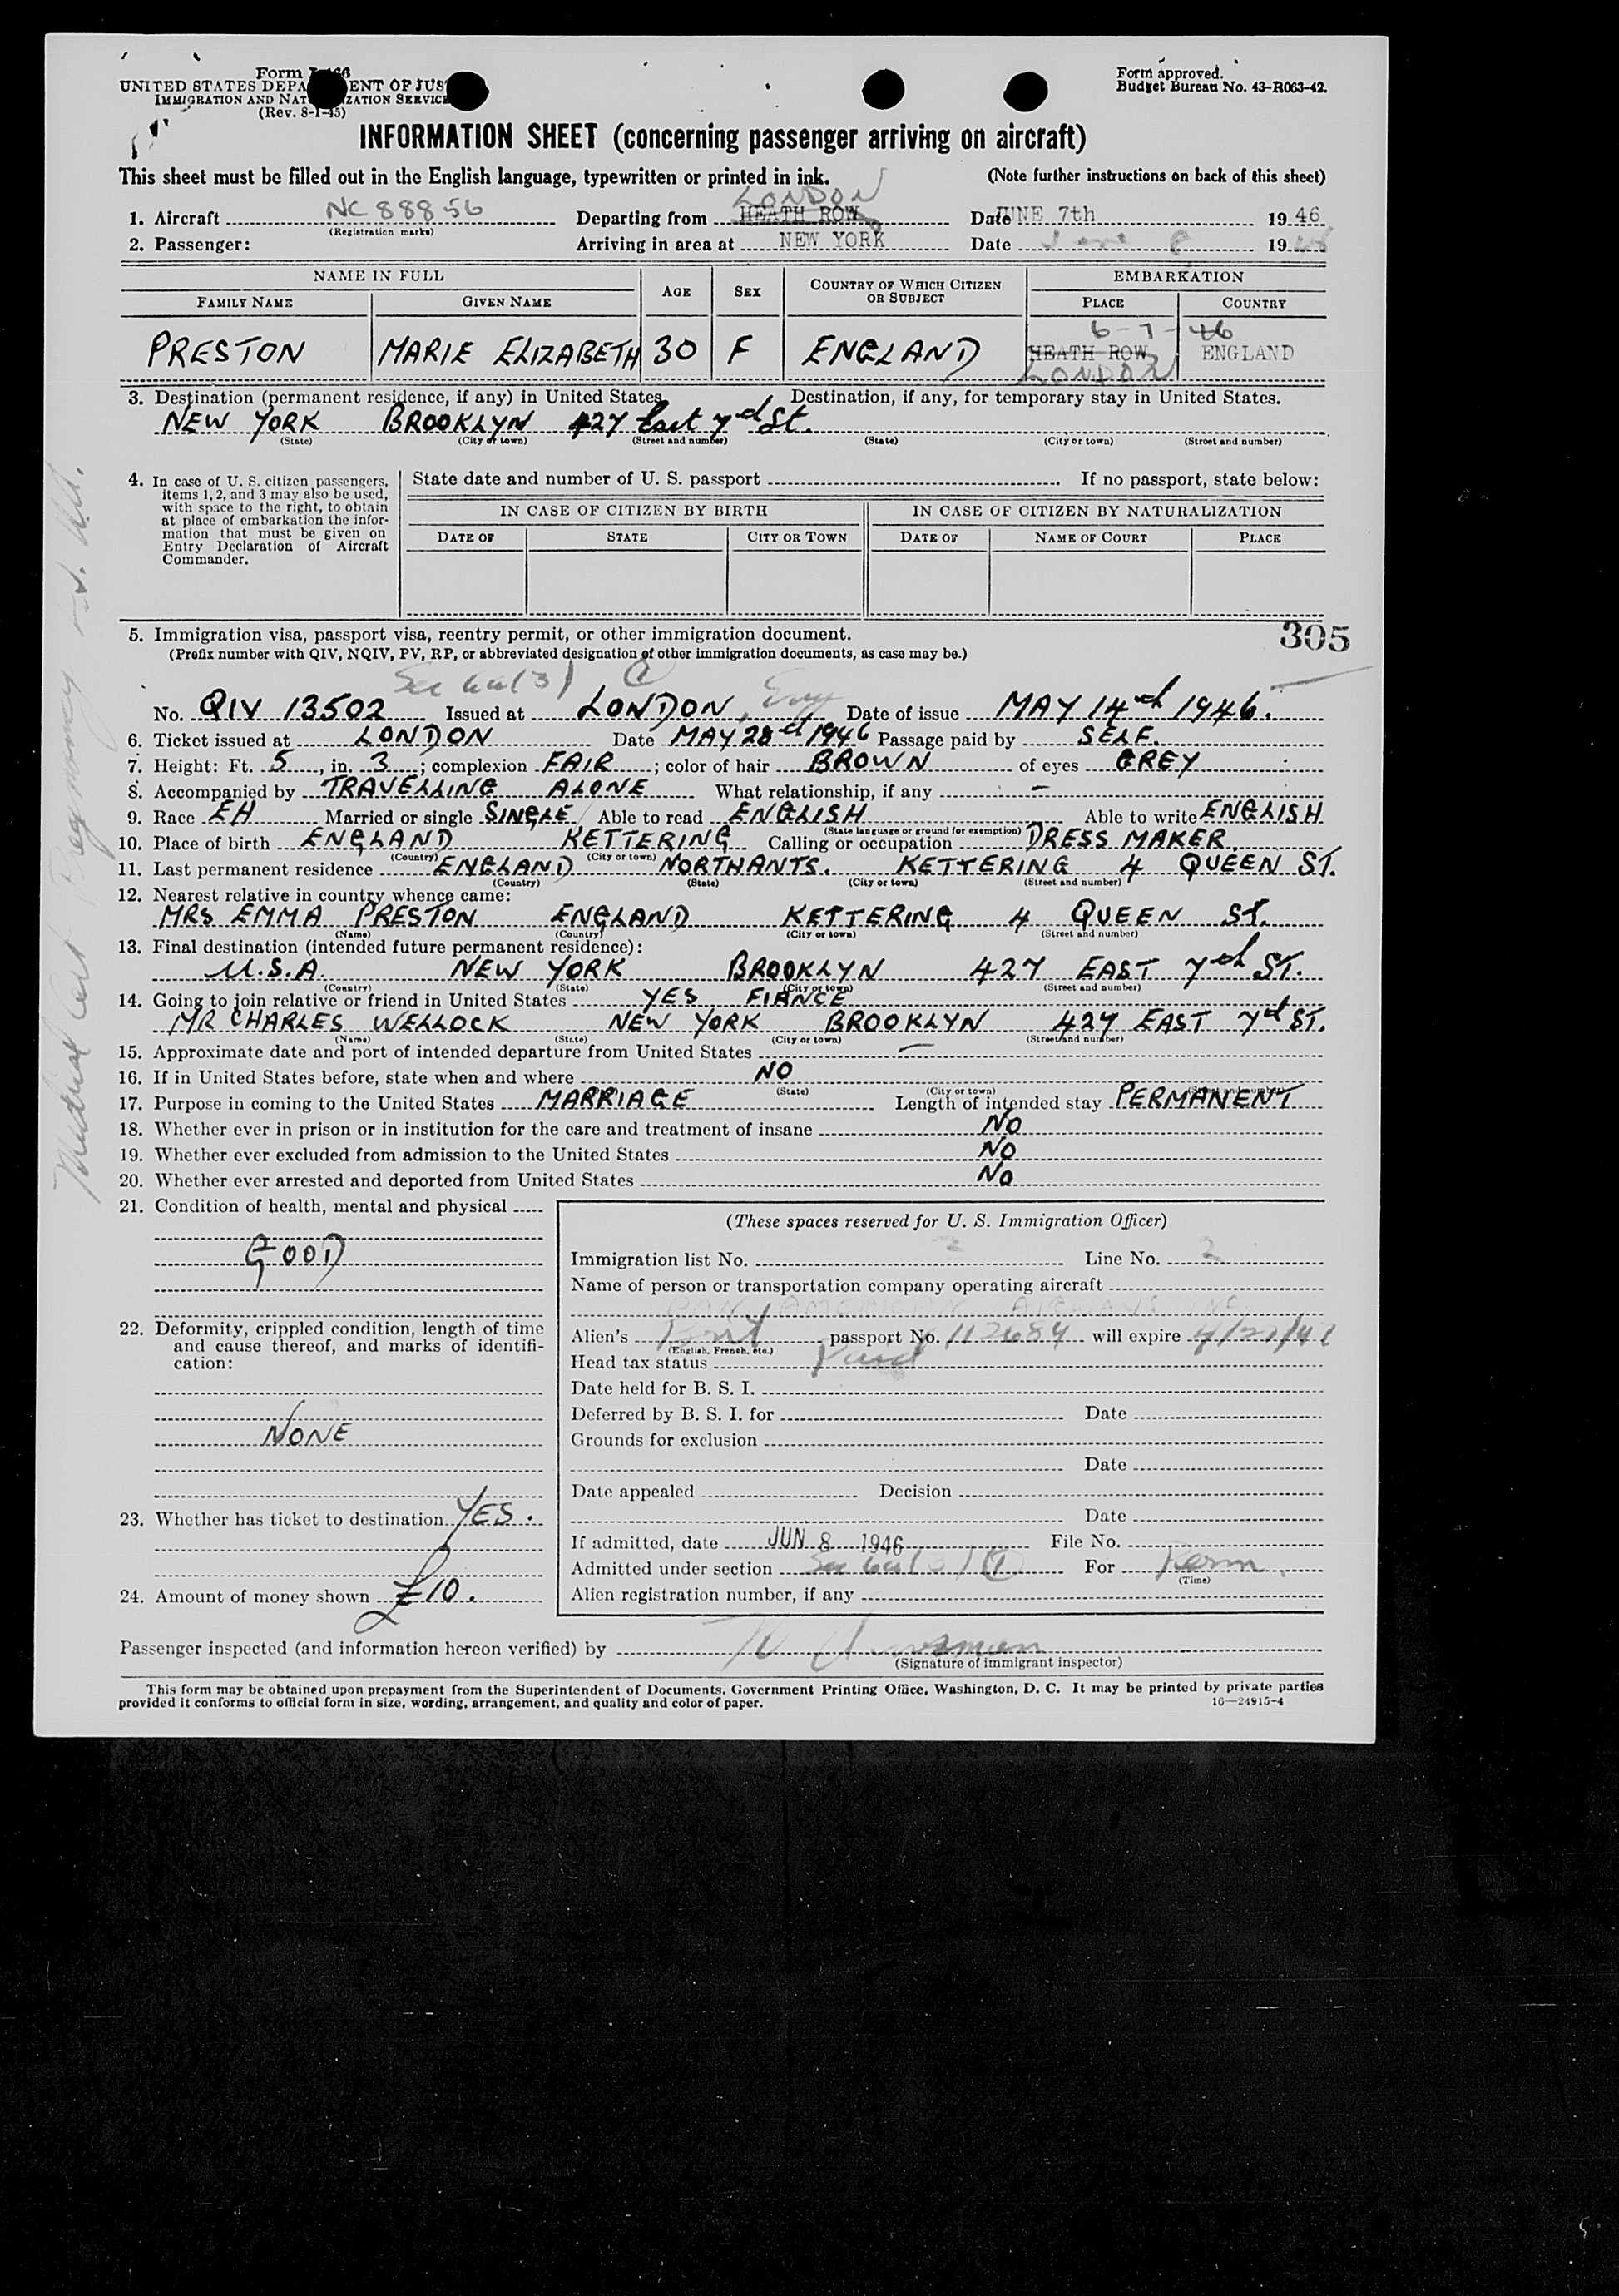 Form
UNITED STATES DEPA ENT OF JUS
IMMIGRATION AND NAT IZATION SERVICE
(Rev. 8-1-45)
Form approved.
Budget Bureau No. 43-R063-42.
INFORMATION SHEET (concerning passenger arriving on aircraft)
This sheet must be filled out in the English language, typewritten or printed in ink. (Note further instructions on back of this sheet)
LONDON
1. Aircraft NC 88856 Departing from HEATH ROW Date JUNE 7th 1946
(Registration marks)
2. Passenger: Arriving in area at NEW YORK Date June 8 19
NAME IN FULL AGE SEX COUNTRY OF WHICH CITIZEN OR SUBJECT EMBARKATION
FAMILY NAME GIVEN NAME PLACE COUNTRY
6-7-46
PRESTON MARIE ELIZABETH 30 F ENGLAND HEATH ROW ENGLAND
LONDON
3. Destination (permanent residence, if any) in United States Destination, if any, for temporary stay in United States.
NEW YORK BROOKLYN 427 East 7d St.
(State) (City or town) (Street and number) (State) (City or town) (Street and number)
4. In case of U. S. citizen passengers, items 1, 2, and 3 may also be used, with space to the right, to obtain at place of embarkation the information that must be given on Entry Declaration of Aircraft Commander.
State date and number of U. S. passport If no passport, state below:
IN CASE OF CITIZEN BY BIRTH IN CASE OF CITIZEN BY NATURALIZATION
DATE OF STATE CITY OR TOWN DATE OF NAME OF COURT PLACE
305
5. Immigration visa, passport visa, reentry permit, or other immigration document.
(Prefix number with QIV, NQIV, PV, RP, or abbreviated designation of other immigration documents, as case may be.)
Sec 6a(3) (1)
No. QIV 13502 Issued at LONDON, Eng Date of issue MAY 14th 1946.
6. Ticket issued at LONDON Date MAY 28d 1946 Passage paid by SELF.
7. Height: Ft. 5, in. 3; complexion FAIR; color of hair BROWN of eyes GREY
8. Accompanied by TRAVELLING ALONE What relationship, if any –
9. Race EH Married or single SINGLE Able to read ENGLISH Able to write ENGLISH
(State language or ground for exemption)
10. Place of birth ENGLAND KETTERING Calling or occupation DRESS MAKER.
(Country) (City or town)
11. Last permanent residence ENGLAND NORTHANTS. KETTERING 4 QUEEN ST.
(Country) (State) (City or town) (Street and number)
12. Nearest relative in country whence came:
MRS EMMA PRESTON ENGLAND KETTERING 4 QUEEN ST.
(Name) (Country) (City or town) (Street and number)
13. Final destination (intended future permanent residence):
U.S.A. NEW YORK BROOKLYN 427 EAST 7th ST.
(Country) (State) (City or town) (Street and number)
14. Going to join relative or friend in United States YES FIANCE
MR CHARLES WELLOCK NEW YORK BROOKLYN 427 EAST 7d ST.
(Name) (State) (City or town) (Street and number)
15. Approximate date and port of intended departure from United States –
16. If in United States before, state when and where NO
(State) (City or town) (Street and number)
17. Purpose in coming to the United States MARRIAGE Length of intended stay PERMANENT
18. Whether ever in prison or in institution for the care and treatment of insane NO
19. Whether ever excluded from admission to the United States NO
20. Whether ever arrested and deported from United States NO
21. Condition of health, mental and physical
GOOD
22. Deformity, crippled condition, length of time and cause thereof, and marks of identification:
NONE
23. Whether has ticket to destination YES.
24. Amount of money shown £10.
(These spaces reserved for U. S. Immigration Officer)
Immigration list No. 2 Line No. 2
Name of person or transportation company operating aircraft
PAN AMERICAN AIRWAYS INC.
Alien's Brit passport No. 112684 will expire 4/22/47
(English, French, etc.)
Head tax status Paid
Date held for B. S. I.
Deferred by B. S. I. for Date
Grounds for exclusion
Date
Date appealed Decision
Date
If admitted, date JUN 8 1946 File No.
Admitted under section Sec 6a(3) (1) For Perm.
(Time)
Alien registration number, if any
Passenger inspected (and information hereon verified) by
(Signature of immigrant inspector)
This form may be obtained upon prepayment from the Superintendent of Documents, Government Printing Office, Washington, D. C. It may be printed by private parties
provided it conforms to official form in size, wording, arrangement, and quality and color of paper. 16—24915-4
Medical Cert Pregnancy